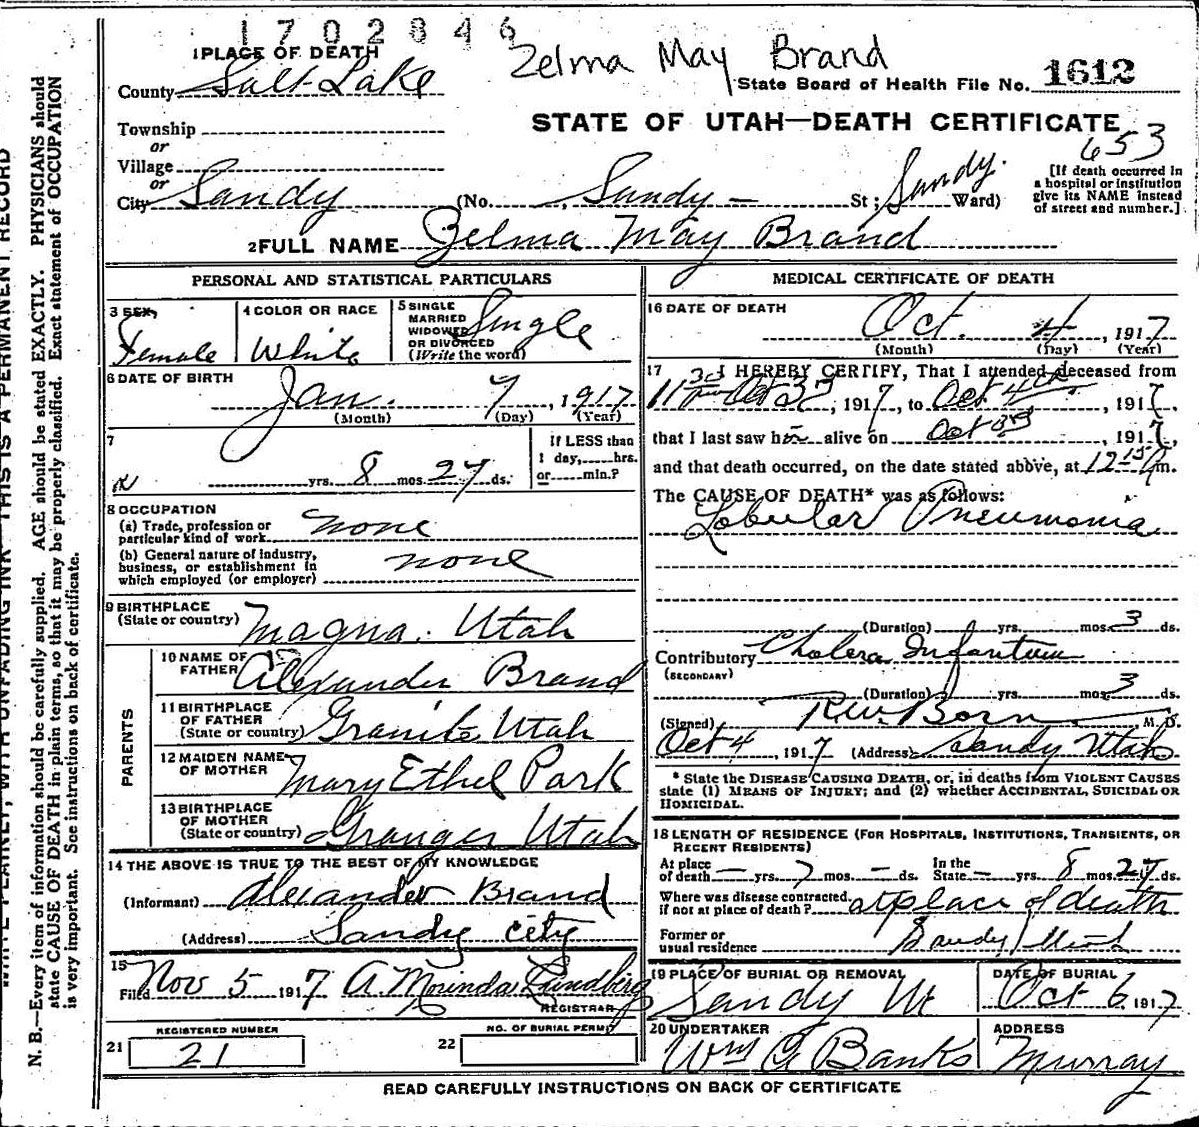 1702846
Zelma May Brand
1 PLACE OF DEATH
County Salt Lake
State Board of Health File No. 1612
Township
STATE OF UTAH—DEATH CERTIFICATE
or
Village
653
or
City Sandy (No. , Sandy — St ; Sandy Ward)
[If death occurred in
a hospital or institution
give its NAME instead
of street and number.]
2 FULL NAME Zelma May Brand
PERSONAL AND STATISTICAL PARTICULARS
3 SEX, Female
4 COLOR OR RACE White
5 SINGLE
MARRIED
WIDOWED
OR DIVORCED
(Write the word) Single
6 DATE OF BIRTH
Jan. 7, 1917
(Month) (Day) (Year)
7
yrs. 8 mos. 27 ds.
If LESS than
1 day, hrs.
or min.?
8 OCCUPATION
(a) Trade, profession or
particular kind of work none
(b) General nature of industry,
business, or establishment in
which employed (or employer) none
9 BIRTHPLACE
(State or country) Magna. Utah
PARENTS
10 NAME OF
FATHER Alexander Brand
11 BIRTHPLACE
OF FATHER
(State or country) Granite Utah
12 MAIDEN NAME
OF MOTHER Mary Ethel Park
13 BIRTHPLACE
OF MOTHER
(State or country) Granger Utah
14 THE ABOVE IS TRUE TO THE BEST OF MY KNOWLEDGE
(Informant) Alexander Brand
(Address) Sandy city
15
Filed Nov 5 1917 A Morinda Lundberg
REGISTRAR
REGISTERED NUMBER
21 21
NO. OF BURIAL PERMIT
22
MEDICAL CERTIFICATE OF DEATH
16 DATE OF DEATH
Oct. 4, 1917
(Month) (Day) (Year)
17 I HEREBY CERTIFY, That I attended deceased from
Oct 3rd, 1917, to Oct 4th, 1917,
that I last saw her alive on Oct 3rd, 1917,
and that death occurred, on the date stated above, at 12 15 m.
The CAUSE OF DEATH* was as follows:
Lobular Pneumonia
(Duration) yrs. mos. 3 ds.
Contributory Cholera Infantum
(SECONDARY)
(Duration) yrs. mos. 3 ds.
(Signed) R.W. Born M. D.
Oct 4, 1917 (Address) Sandy Utah
* State the DISEASE CAUSING DEATH, or, in deaths from VIOLENT CAUSES
state (1) MEANS OF INJURY; and (2) whether ACCIDENTAL, SUICIDAL OR
HOMICIDAL.
18 LENGTH OF RESIDENCE (FOR HOSPITALS, INSTITUTIONS, TRANSIENTS, OR
RECENT RESIDENTS)
At place
of death — yrs. 7 mos. — ds.
In the
State — yrs. 8 mos. 27 ds.
Where was disease contracted,
if not at place of death? at place of death
Former or
usual residence Sandy Utah
19 PLACE OF BURIAL OR REMOVAL
Sandy Ut
DATE OF BURIAL
Oct 6 1917
20 UNDERTAKER
Wm G Banks
ADDRESS
Murray
READ CAREFULLY INSTRUCTIONS ON BACK OF CERTIFICATE
N. B.—Every item of information should be carefully supplied. AGE should be stated EXACTLY. PHYSICIANS should
state CAUSE OF DEATH in plain terms, so that it may be properly classified. Exact statement of OCCUPATION
is very important. See instructions on back of certificate.
WRITE PLAINLY, WITH UNFADING INK—THIS IS A PERMANENT RECORD